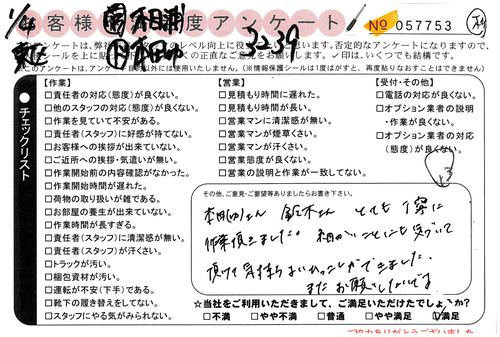 客様 度アンケート
No 057753
1/4
3239
アンケートは、弊社 レベル向上に役 思います。否定的なアンケートになりますので、
シールを上に くの正直なご意見をお聞かせ下さい。✓印は、いくつでも結構です。
このアンケートは、アンケート 以外には使用いたしません。(※情報保護シールは1度はがすと、再度貼りなおすことはできません)
●チェックリスト
【作業】
□責任者の対応(態度)が良くない。
□他のスタッフの対応(態度)が良くない。
□作業を見ていて不安がある。
□責任者(スタッフ)に好感が持てない。
□お客様への挨拶が出来ていない。
□ご近所への挨拶・気遣いが無い。
□作業開始前の内容確認がなかった。
□作業開始時間が遅れた。
□荷物の取り扱いが雑である。
□お部屋の養生が出来ていない。
□作業時間が長すぎる。
□責任者(スタッフ)に清潔感が無い。
□責任者(スタッフ)が汗くさい。
□トラックが汚い。
□梱包資材が汚い。
□運転が不安(下手)である。
□靴下の履き替えをしてない。
□スタッフにやる気がみられない。
【営業】
□見積もり時間に遅れた。
□見積もり時間が長い。
□営業マンに清潔感が無い。
□営業マンが煙草くさい。
□営業マンが汗くさい。
□営業態度が良くない。
□営業の説明と作業が一致してない。
【受付・その他】
□電話の対応が良くない。
□オプション業者の説明
・作業が良くない。
□オプション業者の対応
(態度)が良くない。
その他、ご意見・ご要望等ありましたらお書き下さい。
本田さん 鈴木さん とても丁寧に
作業頂きました。細かいことにも気づいて
頂けて気持ちよいひっこしができました。
またお願いしたいです。
☆当社をご利用いただきまして、ご満足いただけたでしょうか?
□不満 □やや不満 □普通 □やや満足 ☑満足
ご協力ありがとうございました